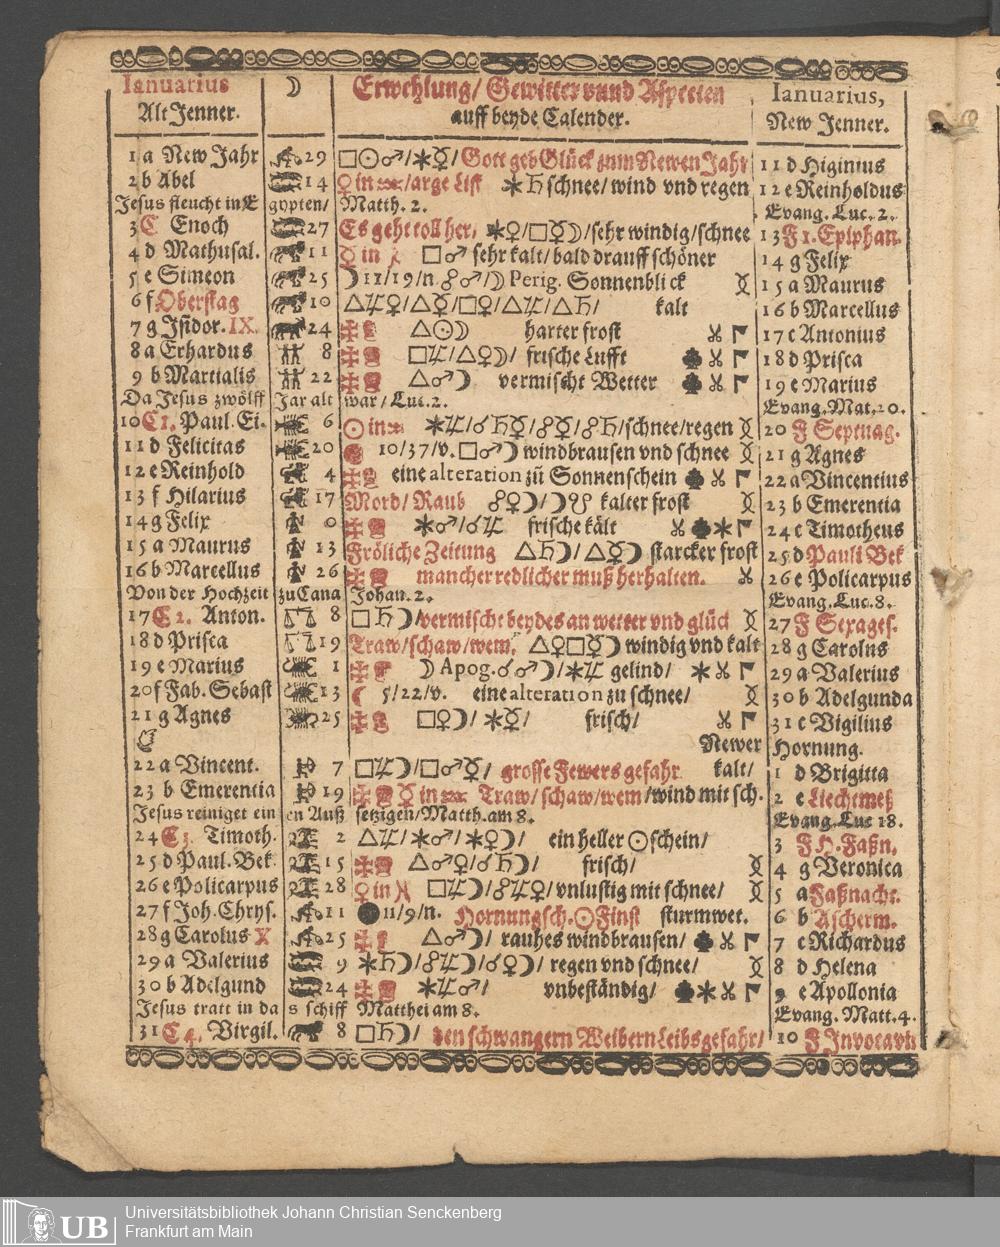 Ianuarius ☽ Erwehlung/ Gewitter vnnd Aspecten Ianuarius,
Alt Jenner. auff beyde Calender. New Jenner.
1 a New Jahr 29 □☉♂/✶☿/Gott geb Glück zum Newen Jahr 11 d Higinius
2 b Abel 14 ♀ in ♒/arge List ✶♄ schnee/ wind vnd regen 12 e Reinholdus
Jesus fleucht in E gypten/ Matth. 2. Evang. Luc. 2.
3 C Enoch 27 Es geht toll her/ ✶♀/□☿☽/sehr windig/schnee 13 F 1. Epiphan.
4 d Mathusal. 11 ☿ in □♂ sehr kalt/ bald drauff schöner 14 g Felix
5 e Simeon 25 ☽ 11/19/n. ☍♂/☽ Perig. Sonnenblick 15 a Maurus
6 f Oberstag 10 △♃♀/△☿/□♀/△♃/△♄/ kalt 16 b Marcellus
7 g Isidor. IX. 24 △☉☽ harter frost 17 c Antonius
8 a Erhardus 8 □♃/△♀☽/ frische Lufft 18 d Prisca
9 b Martialis 22 △♂☽ vermischt Wetter 19 e Marius
Da Jesus zwölff Jar alt war/ Luc. 2. Evang. Mat. 20.
10 C 1. Paul. Ei. 6 ☉ in ♒ ✶♃/☌♄☿/☍☿/☍♄/schnee/regen 20 F Septuag.
11 d Felicitas 20 10/37/v. □♂☽ windbrausen vnd schnee 21 g Agnes
12 e Reinhold 4 eine alteration zū Sonnenschein 22 a Vincentius
13 f Hilarius 17 Mord/ Raub ☍♀☽/☽☋ kalter frost 23 b Emerentia
14 g Felix 0 ✶♂/☌♃ frische kält 24 c Timotheus
15 a Maurus 13 Fröliche Zeitung △♄☽/△☿☽ starcker frost 25 d Pauli Bek
16 b Marcellus 26 mancher redlicher muß herhalten. 26 e Policarpus
Von der Hochzeit zu Cana Johan. 2. Evang. Luc. 8.
17 C 2. Anton. 8 □♄☽/vermischt beydes an wetter vnd glück 27 F Sexages.
18 d Prisca 19 Traw/schaw/wem/ △♀□☿☽ windig vnd kalt 28 g Carolus
19 e Marius 1 ☽ Apog. ☌♂☽/✶♃ gelind/ 29 a Valerius
20 f Fab. Sebast 13 ☾ 5/22/v. eine alteration zu schnee/ 30 b Adelgunda
21 g Agnes 25 □♀☽/ ✶☿/ frisch/ 31 c Vigilius
Newer Hornung.
22 a Vincent. 7 □♃☽/□♂☿/ grosse Fewersgefahr kalt/ 1 d Brigitta
23 b Emerentia 19 ☿ in ♒ Traw/ schaw/wem/wind mit sch. 2 e Liechtmeß
Jesus reiniget ein en Auß setzigen/Matth. am 8. Evang. Luc 18.
24 C 3. Timoth. 2 △♃/✶♂/✶♀☽/ ein heller ☉schein/ 3 F H. Faßn.
25 d Paul. Bek. 15 △♂♀/☌♄☽/ frisch/ 4 g Veronica
26 e Policarpus 28 ♀ in ♓ □♃☽/☍♃♀/vnlustig mit schnee/ 5 a Faßnacht.
27 f Joh. Chrys. 11 ● 11/9/n. Hornungsch. ☉ Finst sturmwet. 6 b Ascherm.
28 g Carolus X 25 △♂☽/ rauhes windbrausen/ 7 c Richardus
29 a Valerius 9 ✶♄☽/☍♃☽/☌♀☽/ regen vnd schnee/ 8 d Helena
30 b Adelgund 24 ✶♃♂/ vnbeständig/ 9 e Apollonia
Jesus tratt in da s schiff Matthei am 8. Evang. Matt. 4.
31 C 4. Virgil. 8 □♄☽/ den schwangern Weibern Leibsgefahr/ 10 F Invocavit
UB Universitätsbibliothek Johann Christian Senckenberg
Frankfurt am Main